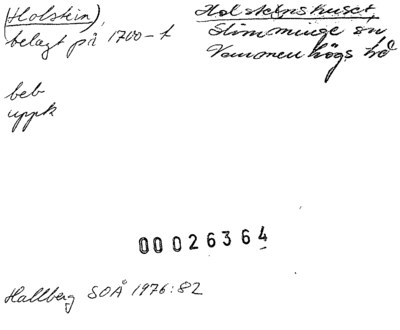 (Holskin),
belagt på 1700-t
Holskinshuset,
Slimminge sn,
Vemmenhögs hd
beb
uppk
00026364
Hallberg SOÅ 1976:82